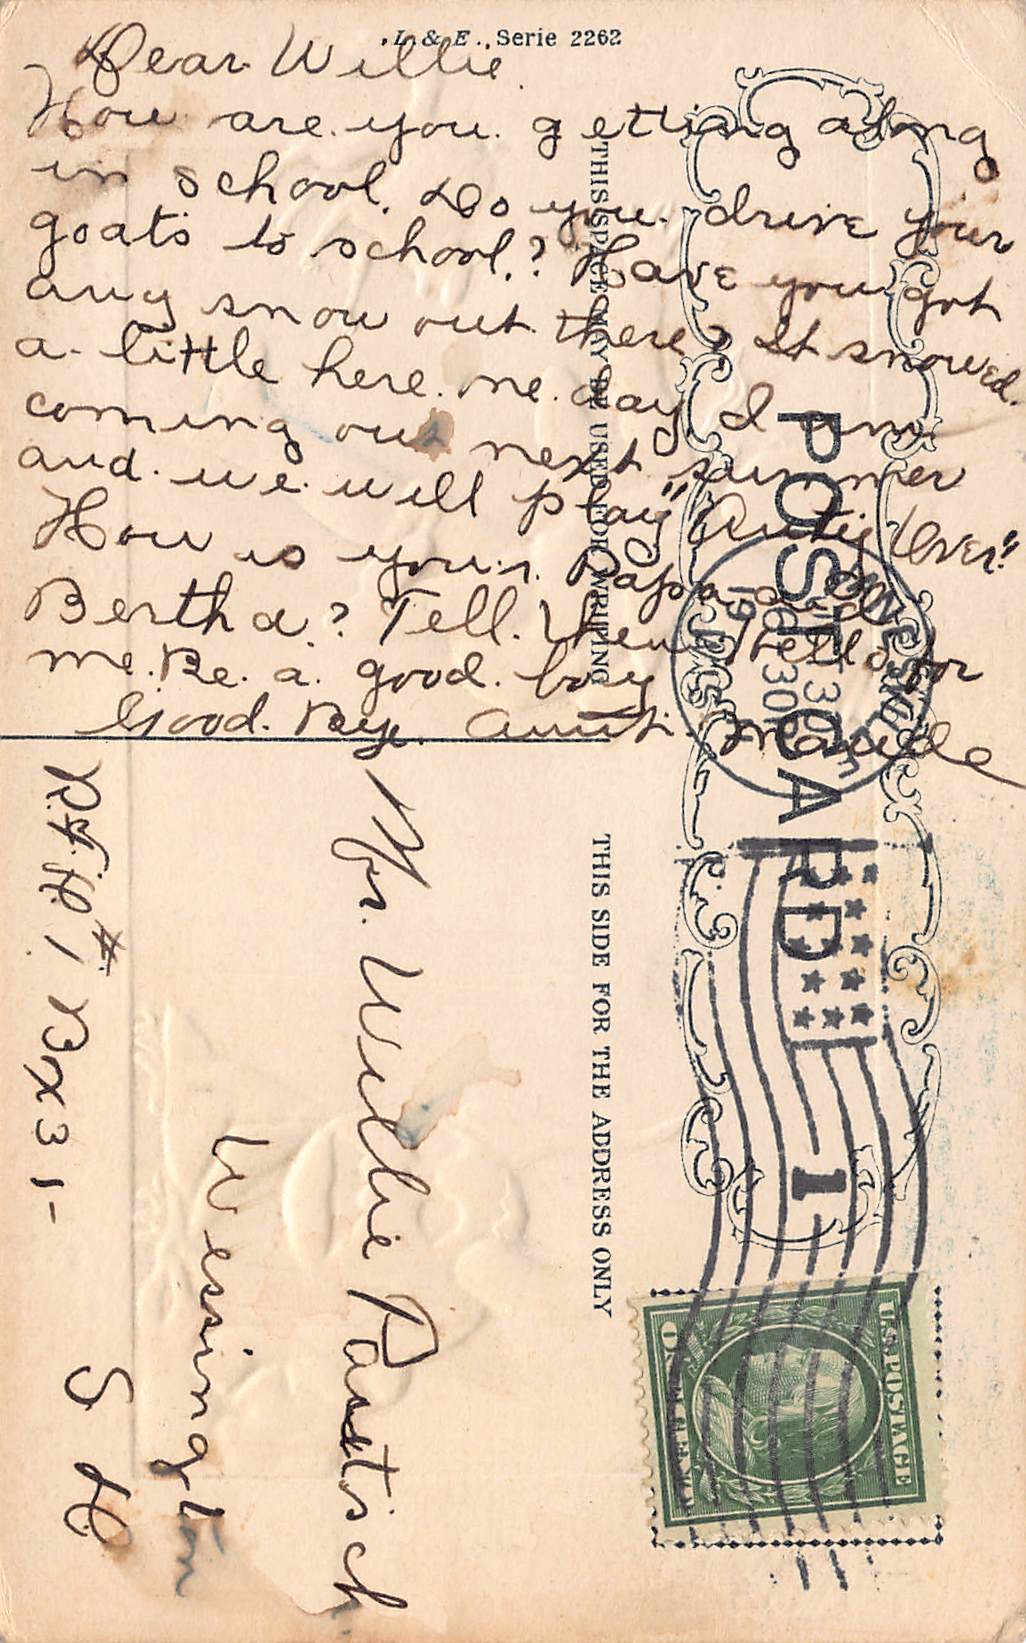 L & E., Serie 2262
Dear Willie
How are you getting along
in school. Do you drive your
goats to school.? Have you got
any snow out there? It snowed.
a little here one day I am
coming out next summer
and we will play "Anty Over"
How is your Papa and
Bertha? Tell them hello for
me. Be a good boy
Good Bye. Aunt
THIS SPACE MAY BE USED FOR WRITING
THIS SIDE FOR THE ADDRESS ONLY
POST CARD
1
U.S. POSTAGE
ONE CENT
Mr. Willie Paetsch
Wessington
S D
R.F.D. #1 Bx 31-